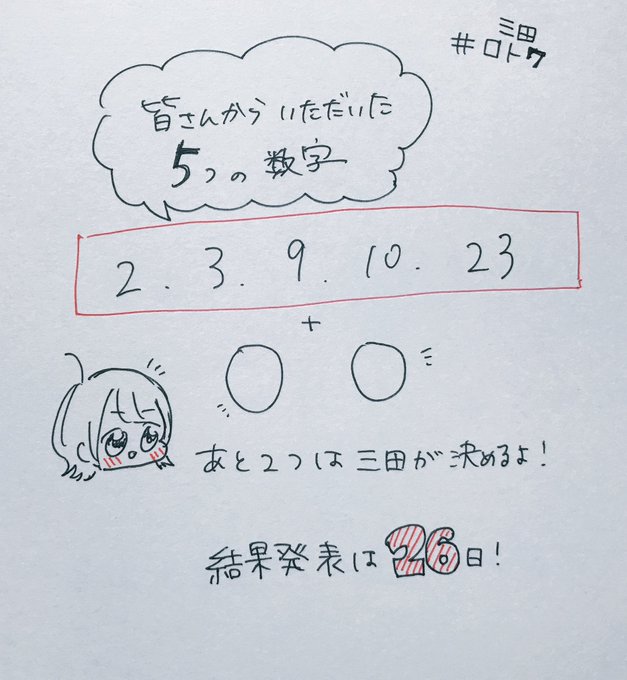 三田
#ロト7
皆さんから いただいた
5つの 数字
2. 3. 9. 10. 23
+
あと2つは 三田が 決めるよ!
結果発表は 26日!